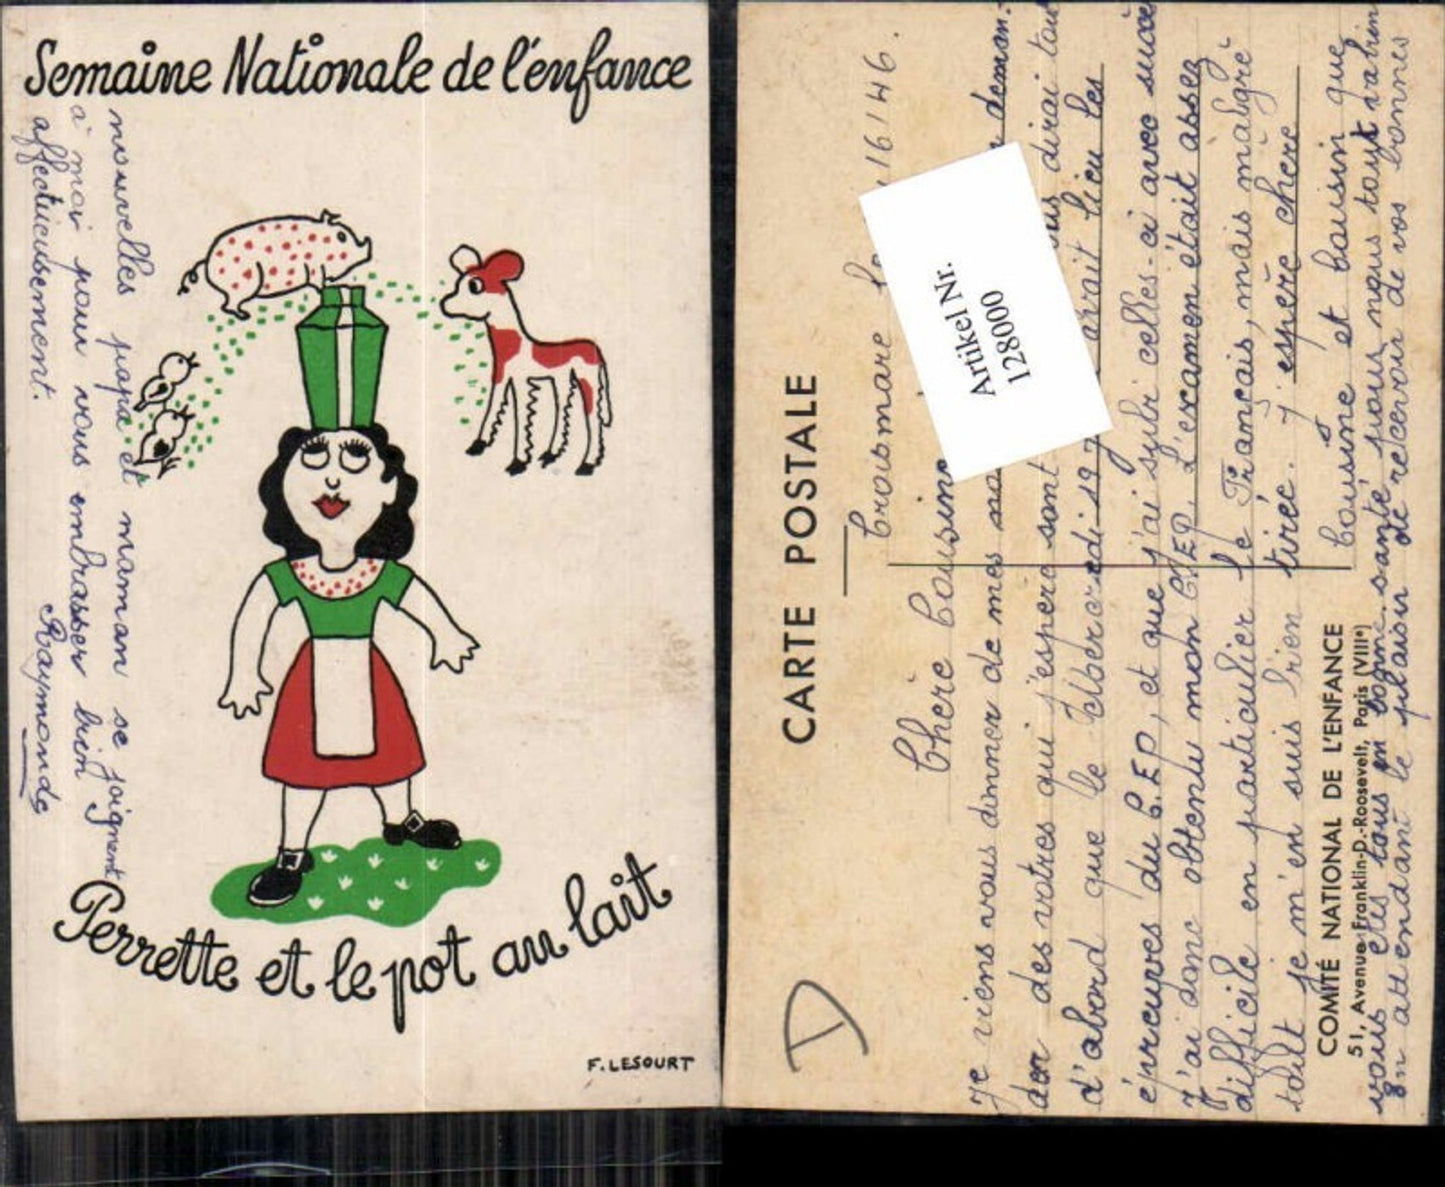 Semaine Nationale de l'enfance
nouvelles papa et maman se joignent
à moi pour vous embrasser bien
affectueusement.
Raymonde
Perrette et le pot au lait
F. LESOURT
CARTE POSTALE
Croismare le 16/46.
Artikel Nr.
128000
Chère Cousine
Je viens vous donner de mes deman-
der des votres qui j'espère sont dirai tout
d'abord que le mercredi 19 avait lieu les
épreuves du C.E.P, et que j'ai subi celles-ci avec succès
J'ai donc obtenu mon C.E.P. L'examen était assez
difficile en particulier le Français, mais malgré
toute je m'en suis bien tirée. J'espère chère
Cousine et Cousin que
vous êtes tous en bonne santé, pour nous tout va bien
En attendant le plaisir de recevoir de vos bonnes
COMITÉ NATIONAL DE L'ENFANCE
51, Avenue Franklin-D.-Roosevelt, Paris (VIIIe)
D